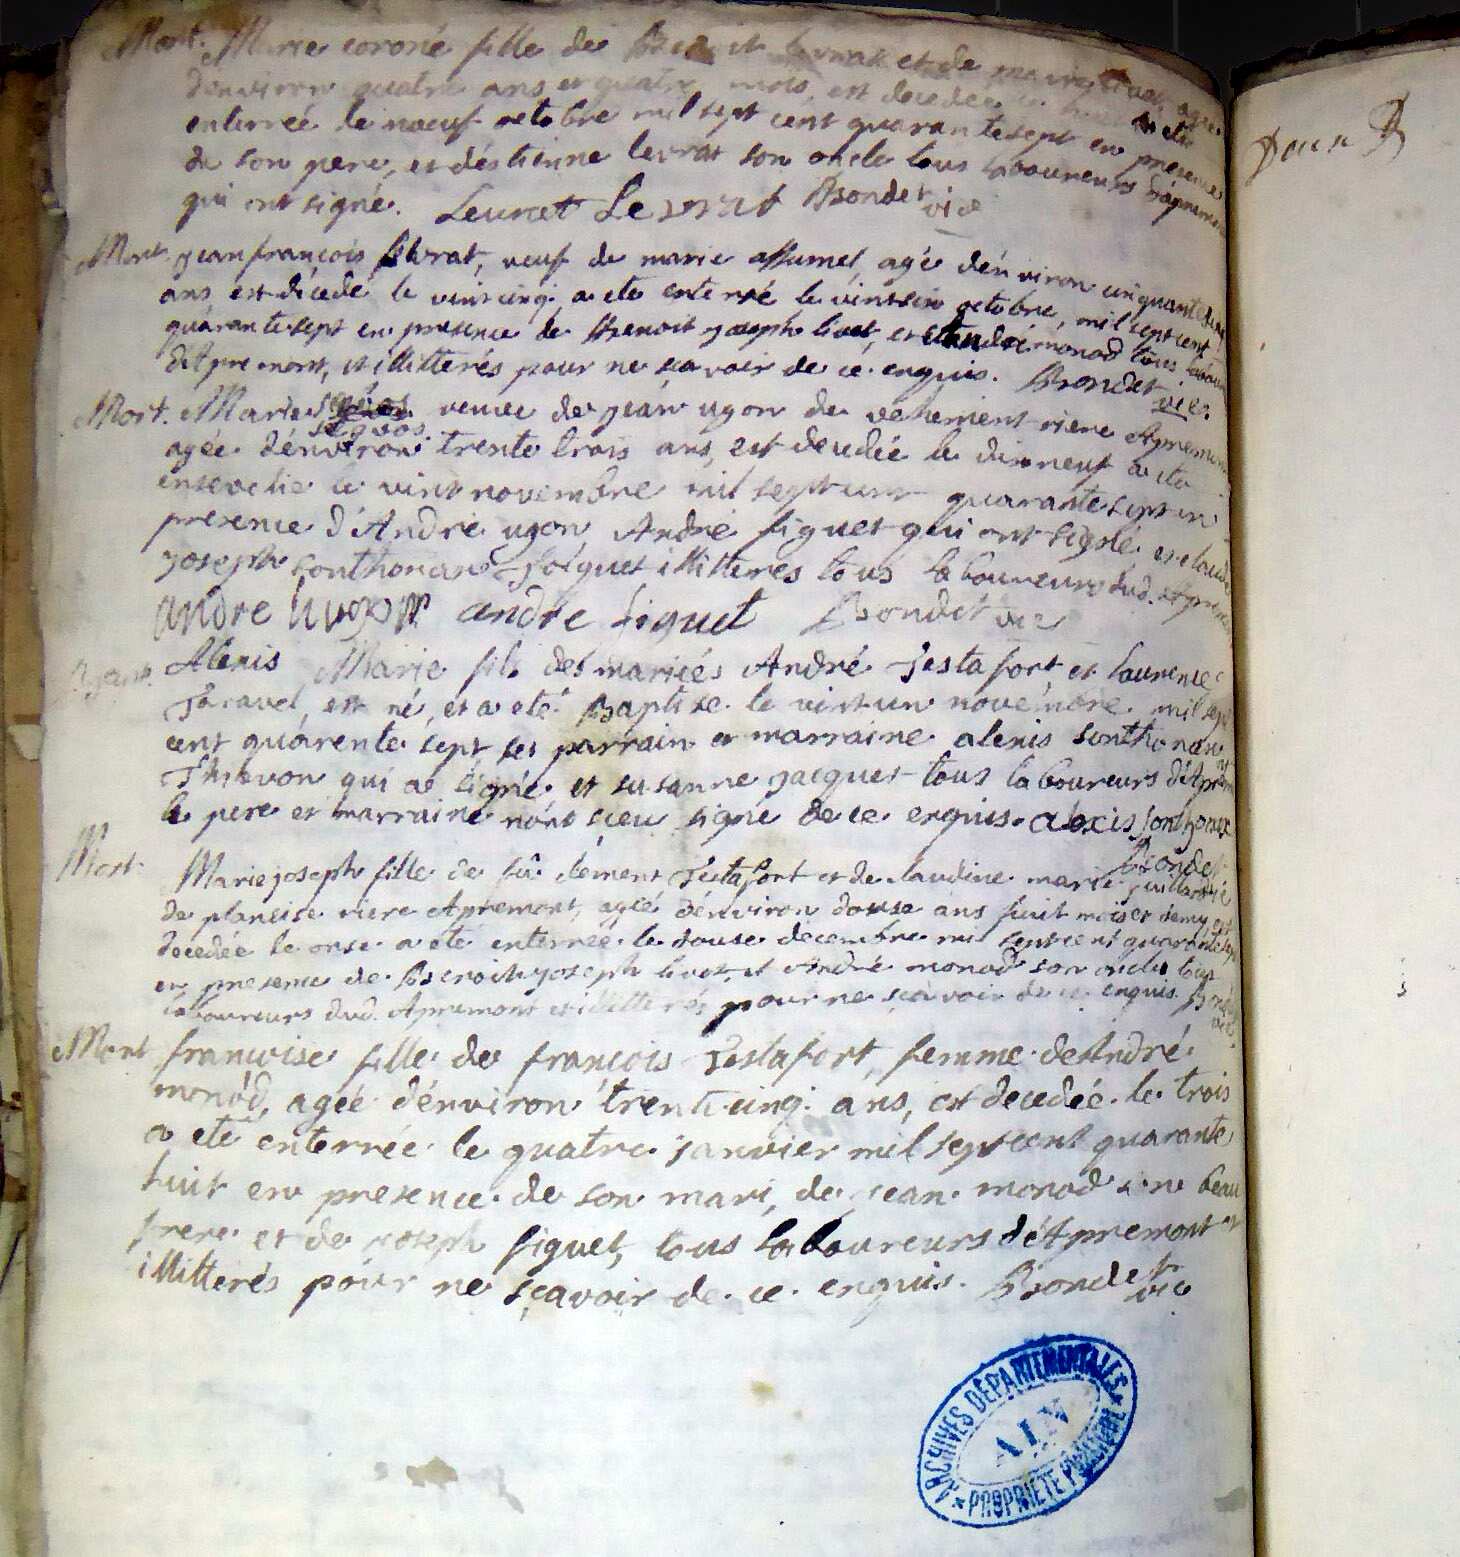 Mort. Marie coroné fille de Benoit levrat et de agée
d'environ quatre ans et quatre mois, est decedée a ete
enterrée le noeuf octobre mil sept cent quarante sept en presence
de son pere, et d'éstienne levrat son oncle tous laboureurs d'apremont
qui ont signé. Levrat Bondet vic
Mort. jean françois levrat, veuf de marie assumel, agé d'énviron cinquante
ans, est décedé le vint cinq, a ete enterré le vint six octobre, mil sept cent
quarante sept en presence de Benoit joseph livet, et andré monod tous labour
d'Apremont, et illitterés pour ne sçavoir de ce enquis. Bondet vic.
Mort. Marie veuve de jean ugon de vehement riere Apremont
agée d'énviron trente trois ans, est decedée le dix neuf a ete
ensevelie le vint novembre mil sept cent quarante sept en
presence d'André ugon, André figuet qui ont signé, et claude
joseph sonthonax foiguet illitteres tous laboureurs dud. Apremont
andre hugon andre figuet Bondet vic
Alexis Marie fils des mariées André Testafort et laurence
Taravel, est né, et a eté Baptise le vint un novembre mil sept
cent quarente sept ses parrain et marraine alexis sonthonax
Thievon qui a signé et susanne jacquet tous laboureurs d'Apremont
le pere et marraine n'ont sceu signé de ce enquis. alexis sonthonax
Bondet vic
Mort. Marie joseph fille de fû clément Testafort et de claudine marie
de planeise riere Apremont, agée d'énviron douse ans huit mois et demy, est
decedée le onse a eté enterreé le douse decembre mil sept cent quarante sept
en presence de Benoit joseph livet, et André monod son oncle tous
laboureurs dud. Apremont et illitterés pour ne sçavoir de ce enquis. Bondet
vic.
Mort francoise fille de françois Testafort, femme de André
monod, agée d'énviron trente cinq ans, est decedée le trois
a eté enterrée le quatre janvier mil sept cent quarante
huit en presence de son mari, de jean monod son beau
frere et de joseph figuet, tous laboureurs d'Apremont et
illitterés pour ne sçavoir de ce enquis. Bondet
vic
ARCHIVES DÉPARTEMENTALES
AIN
★ PROPRIÉTÉ PUBLIQUE ★